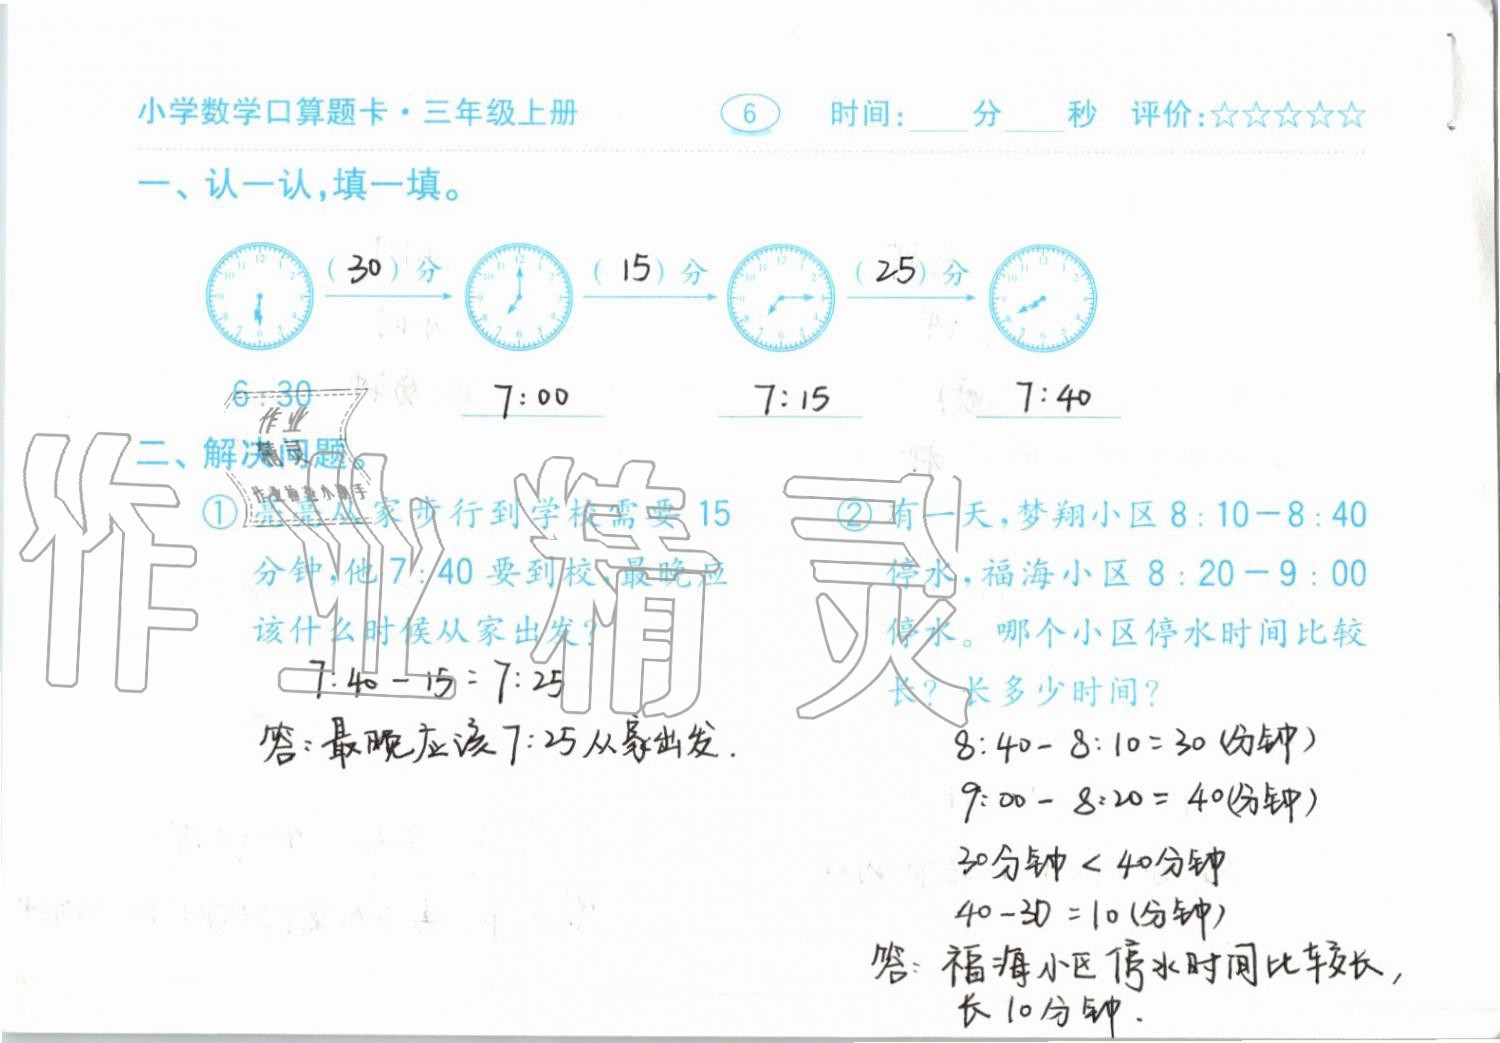 小学数学口算题卡·三年级上册 6 时间:____分____秒 评价:☆☆☆☆☆
一、认一认,填一填。
(30)分 (15)分 (25)分
6:30 7:00 7:15 7:40
作业
精灵
二、解决问题。
作业检查小助手
①亮亮从家步行到学校需要15
分钟,他7:40要到校,最晚应
该什么时候从家出发?
7:40-15=7:25
答:最晚应该7:25从家出发.
②有一天,梦翔小区8:10-8:40
停水,福海小区8:20-9:00
停水。哪个小区停水时间比较
长?长多少时间?
8:40-8:10=30(分钟)
9:00-8:20=40(分钟)
30分钟<40分钟
40-30=10(分钟)
答:福海小区停水时间比较长,
长10分钟.
作业精灵